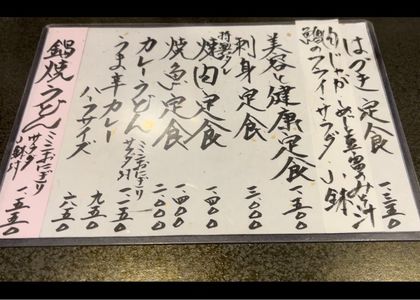 はづき定食 一三五〇
肉じゃが めし 豆富のみそ汁
鯵のフライ サラダ 小鉢
美容と健康定食 一.五〇〇
刺身定食 三.〇〇〇
特製タレ
焼肉定食 一.四〇〇
焼魚定食 一.四〇〇
二.〇〇〇
カレーうどん ミニおにぎり
サラダ付 一.二五〇
うま亭カレー 九五〇
ハーフサイズ 六五〇
鍋焼うどん ミニおにぎり
サラダ
小鉢付 一.五五〇